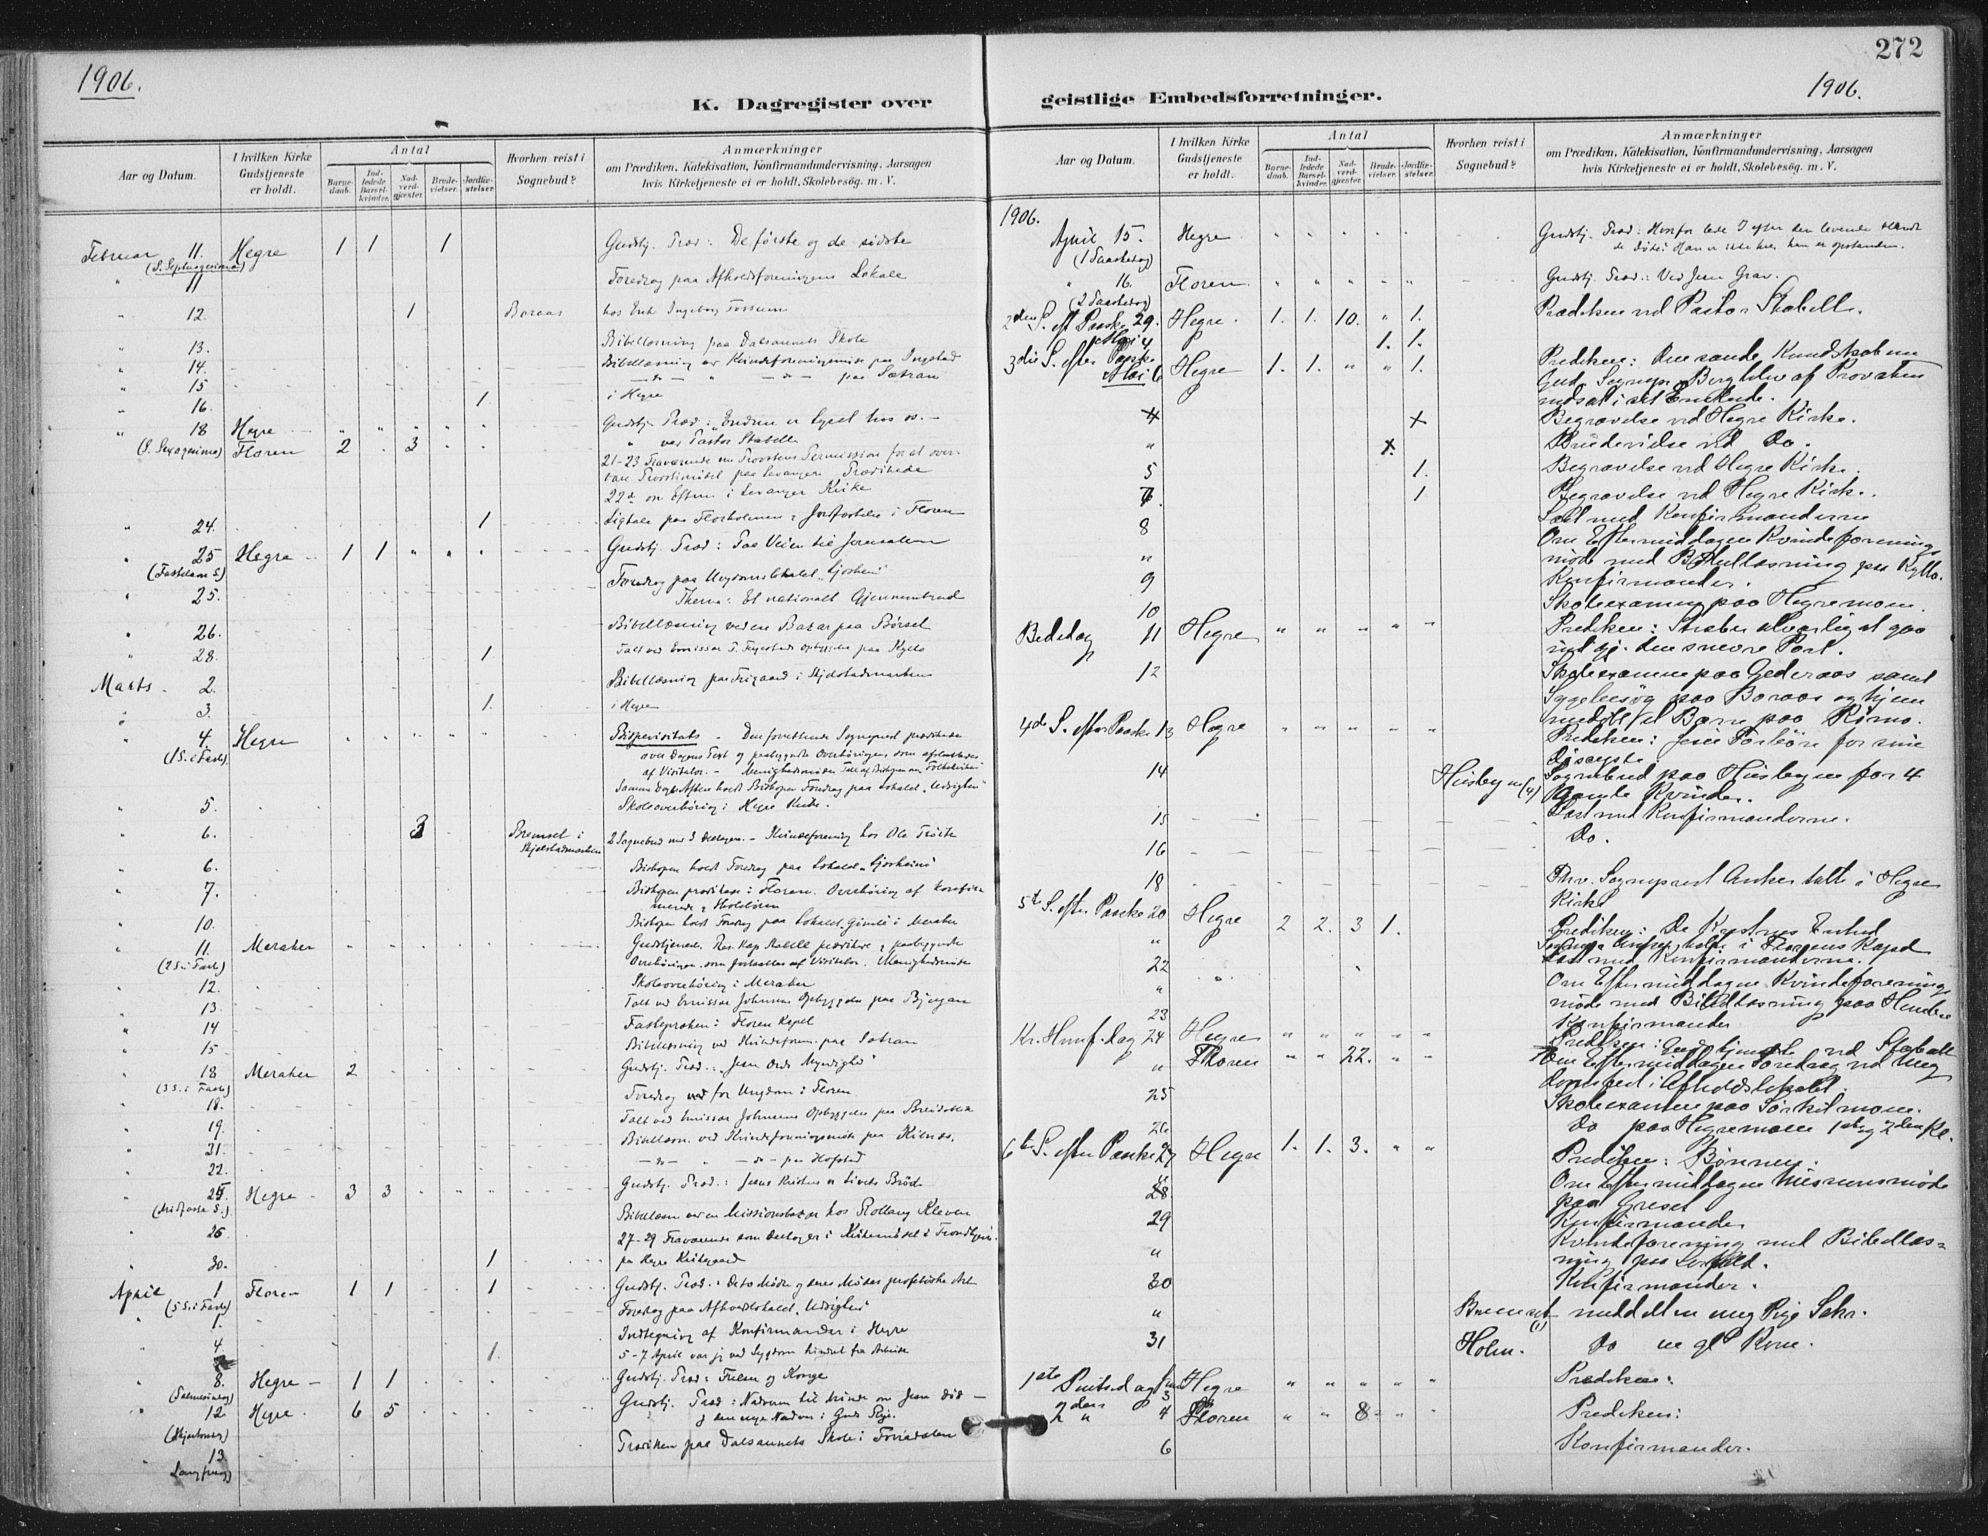 1906.
K. Dagregister over
Aar og Datum.
I hvilken Kirke Gudstjeneste er holdt.
Antal
Barnedaab.
Indledede Barselkvinder.
Nadverdgjæster.
Brudevielser.
Jordfæstelser.
Hvorhen reist i Sognebud?
Anmærkninger
om Prædiken, Katekisation, Konfirmandundervisning, Aarsagen
hvis Kirketjeneste ei er holdt, Skolebesøg. m. V.
Februar 11. Hegre 1 1 1 Gudstj. Præd: De første og de sidste
(S. Septuagesima)
" 11 Foredrag paa Afholdsforeningens Lokale
" 12. 1 Boraas hos Enk Ingeborg Fossum
" 13. Bibellæsning paa Dalsaunets Skole
" 14. Bibellæsning ved Kvindeforeningsmøde paa Ingstad
" 15 —do— " —do— paa Sætran
" 16. 1 i Hegre
" 18 Hegre Gudstj. Præd:
(S. Sexagesima) Floren 2 3 " ved Pastor Stabell
21-23 Fraværende med Provstens Permission for at over-
være
22de om Efterm. i Levanger Kirke
" 24. 1 Ligtale paa Flornholmen & Jordfæstelse i Floren
" 25 Hegre 1 1 Gudstj. Præd: Paa Veien til Jerusalem
(Fastelavns S.)
" 25. Foredrag paa Ungdomslokalet "Gjevhein"
Thema: Et nationalt Gjennembrud
" 26. Bibellæsning ved en Bazar paa Børset
" 28. 1 Talt ved Emissær
Marts 2. Bibellæsning paa Trøgaard i Skjelstadmarken
" 3. 1 i Hegre
" 4 Hegre Bispevisitats - Den forrettende Sogneprest prædikede
(1 S. i Faste) over Dagens Text og paabegyndte Overhøringen, som afsluttedes
af Visitator. -
Samme Dags Aften holdt Biskopen Foredrag paa Lokalet "Udsigten"
" 5. Skoleoverhøring i Hegre Kirke.
" 6. 3 Bremset i Skjelstadmarken 2 Sognebud med 3 Deltagere. - Kvindeforening hos Ole Trøite
" 6. Biskopen holdt Foredrag paa Lokalet "Gjevheim"
" 7. Biskopen prædikede i Floren. Overhøring af konfir-
merede & Skolebørn
" 10. Biskopen holdt Foredrag paa Lokalet Gimle i Meraker
" 11. Meraker Gudstjeneste. Res. Kap. Stabell prædikede & paabegyndte
(2 S. i Faste) Overhøringen, som fortsattes af Visitator. Menighedsmøde
" 12. Skoleoverhøring i Meraker
" 13. Talt ved Emissær Johnsens Opbyggelse paa Bjørgan
" 14 Fastepræken i Floren Kapel
" 15. Bibellæsning ved Kvindeforen. paa Sætran
" 18 Meraker 2 Gudstj. Præd.: "Jesu Ords Myndighed"
(3 S. i Faste)
" 18. Foredrag for Ungdom i Floren
" 19. Talt ved Emissær Johnsens Opbyggelse paa
" 21. Bibellæsn. ved Kvindeforeningsmøde paa Kilnæs.
" 22. —do— " —do— paa Hofstad
" 25. Hegre 3 3 Gudstj. Præd.: Jesus Kristus er Livets Brød
(Midfaste S.)
" 26. Bibellæsn. ved en Missionsbazar hos
27-29 Fraværende som Deltager i Kirkemødet i Trondhjem.
" 30. 1 paa Hegre Kirkegaard
April 1 Floren 1 1 Gudstj. Præd.:
(5 S. i Faste)
" 1. Foredrag paa Afholdslokalet "Udsigten"
" 4. Indtegning af Konfirmander i Hegre
1. 5-7 April var jeg ved Sygdom hindret fra Arbeide
" 8. Hegre 1 1 Gudstj. Præd: Frelser og Konge
(Palmesøndag)
" 12 Hegre 6 5 Gudstj. Præd: Nadveren til Minde om Jesu Død —
(Skjærtorsdag) & den nye Nadver i Guds Rige.
" 13. Prædiken paa Dalsaunets Skole i Forradalen
(Langfredag)
272
1906.
geistlige Embedsforretninger.
Aar og Datum.
I hvilken Kirke Gudstjeneste er holdt.
Antal
Barnedaab.
Indledede Barselkvinder.
Nadverdgjæster.
Brudevielser.
Jordfæstelser.
Hvorhen reist i Sognebud?
Anmærkninger
om Prædiken, Katekisation, Konfirmandundervisning, Aarsagen
hvis Kirketjeneste ei er holdt, Skolebesøg. m. V.
1906.
April 15. Hegre Gudstj. Præd: Hvorfor lede I efter den levende blandt
(1 Paaskedag) de døde? Han er ikke her, han er opstanden.
" 16. Floren Gudstj. Præd: Ved Jesu Grav.
(2 Paaskedag)
2den S. eft Paaske 29. Hegre 1. 1. 10. " 1. Prædiken ved Pastor Stabell.
Mai 4 1. 1.
3die S. efter Paaske Mai 6 Hegre 1. 1. " " 1. Prediken: Den sande Kundskab om
Gud. Sognepr. Bergh blev af Provsten
indsat i sit Embede.
4 x Begravelse ved Hegre Kirke.
" x Brudevielse ved Do.
5 1. Begravelse ved Hegre Kirke.
7. 1 Begravelse ved Hegre Kirke.
8 Læst med Konfirmanderne
" Om Eftermiddagen Kvindeforenings
møde med Bibellæsning paa Kyllo.
9 Konfirmander.
10 Skoleexamen paa Hegremoen.
Bededag 11 Hegre " " " " " Prediken: Stræber alvorlig at gaa
ind gj. den snevre Port.
12 Skoleexamen paa Gederaas samt
Sygebesøg paa Boraas og hjem
meddelt et Barn paa Rimo.
4de S. efter Paaske 13 Hegre " " " " " Prediken: Jesu Forbøn for sine
disciple.
14 Husbyen (4) Sognebud paa Husbyen for 4
gamle Kvinder.
15 Læst med Konfirmanderne.
16 Do.
18 Fhv. Sogneprest Anker talte i Hegre
Kirke
5te S. efter Paaske 20 Hegre 2 2. 3 1. Prediken: De Kristnes Enhed
" Florens Kapel
22 Læst med Konfirmanderne.
" Om Eftermiddagen Kvindeforenings
møde med Bibellæsning paa
23 Konfirmander
Kr. Himf. dag 24 Hegre " " " " " Prediken:
" Floren " " 22. " " Om Eftermiddagen Foredrag ved Ung
domsfest i Afholdslokalet
25 Skoleexamen paa Sørkilmoen.
26 do paa Hegremoen 1ste og 2den Kl.
6te S. efter Paaske 27 Hegre 1. 1. 3. " " Prediken: Bønnen.
" Om Eftermiddagen Missionsmøde
28 paa Græset
29 Konfirmander
" Kvindeforening med Bibellæs=
ning paa
30 Konfirmander.
" Bremset (1) meddelt en ung Pige Sakr.
31 Holm. Do en gl Kone.
1ste Pintsedag Juni 3 Hegre " " " " " Prediken:
2den " 4 Floren " " 8 " " Prediken:
6 Konfirmander.